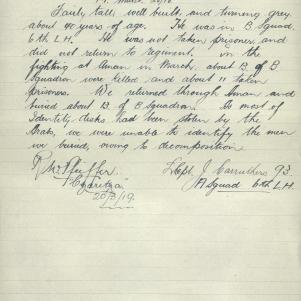 Fairly tall, well built, and turning grey
about 40 years of age. He was in B. Squad,
6th L.H. He was not taken prisoner and
did not return to regiment. in the
fighting at Aman in March, about 13 of B
Squadron were killed and about 11 taken
prisoners. We returned through Aman and
buried about 13 of B Squadron. As most of
Identity disks had been stolen by the
Arabs, we were unable to identify the men
we buried, owing to decomposition.
R.W. Pfeiffer.
20/3/19.
J. Carruthers 93.
A Squad 6th L.H.